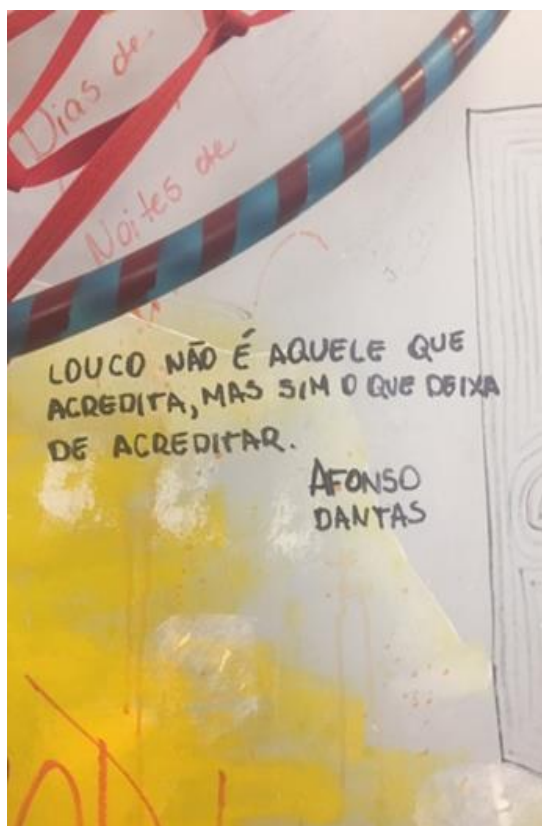 Dias de
Noites de
LOUCO NÃO É AQUELE QUE
ACREDITA, MAS SIM O QUE DEIXA
DE ACREDITAR.
AFONSO
DANTAS